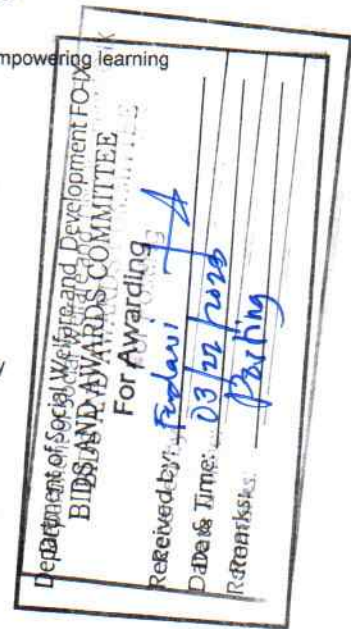 mpowering learning
Department of Social Welfare and Development FO-IX
BIDS AND AWARDS COMMITTEE
For Awarding
Received by:
Date & Time: 03/22/2023
Remarks: